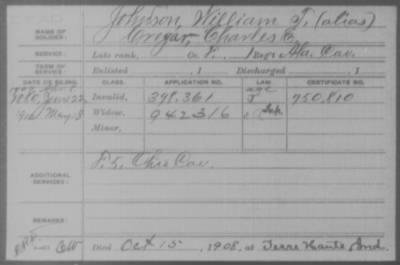 NAME OF SOLDIER: Johnson, William T. (alias)
Cregar, Charles E.
SERVICE: Late rank, Co. F, 1 Reg't Ala. Cav.
TERM OF SERVICE: Enlisted , 1 Discharged , 1
DATE OF FILING. CLASS. APPLICATION NO. LAW. CERTIFICATE NO.
1880, June 22 Invalid, 398,361 J 750,810
May 13 Widow, 942316
Minor,
ADDITIONAL SERVICES: F. 5. Ohio Cav.
REMARKS:
Died Oct 15, 1908, at Terre Haute Ind.